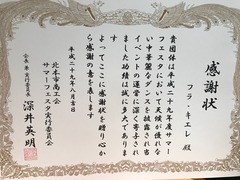 感謝状
フラ・キエレ 殿
貴団体は平成二十九年度サマー
フェスタにおいて天候が優れな
い中華麗なダンスを披露され当
イベントの運営に深く寄与され
ました功績は誠に多大でありま
す
よってここに感謝状を贈り心か
ら感謝の意を表します
平成二十九年八月吉日
北本市商工会
サマーフェスタ実行委員会
会長兼実行委員長
深井英明